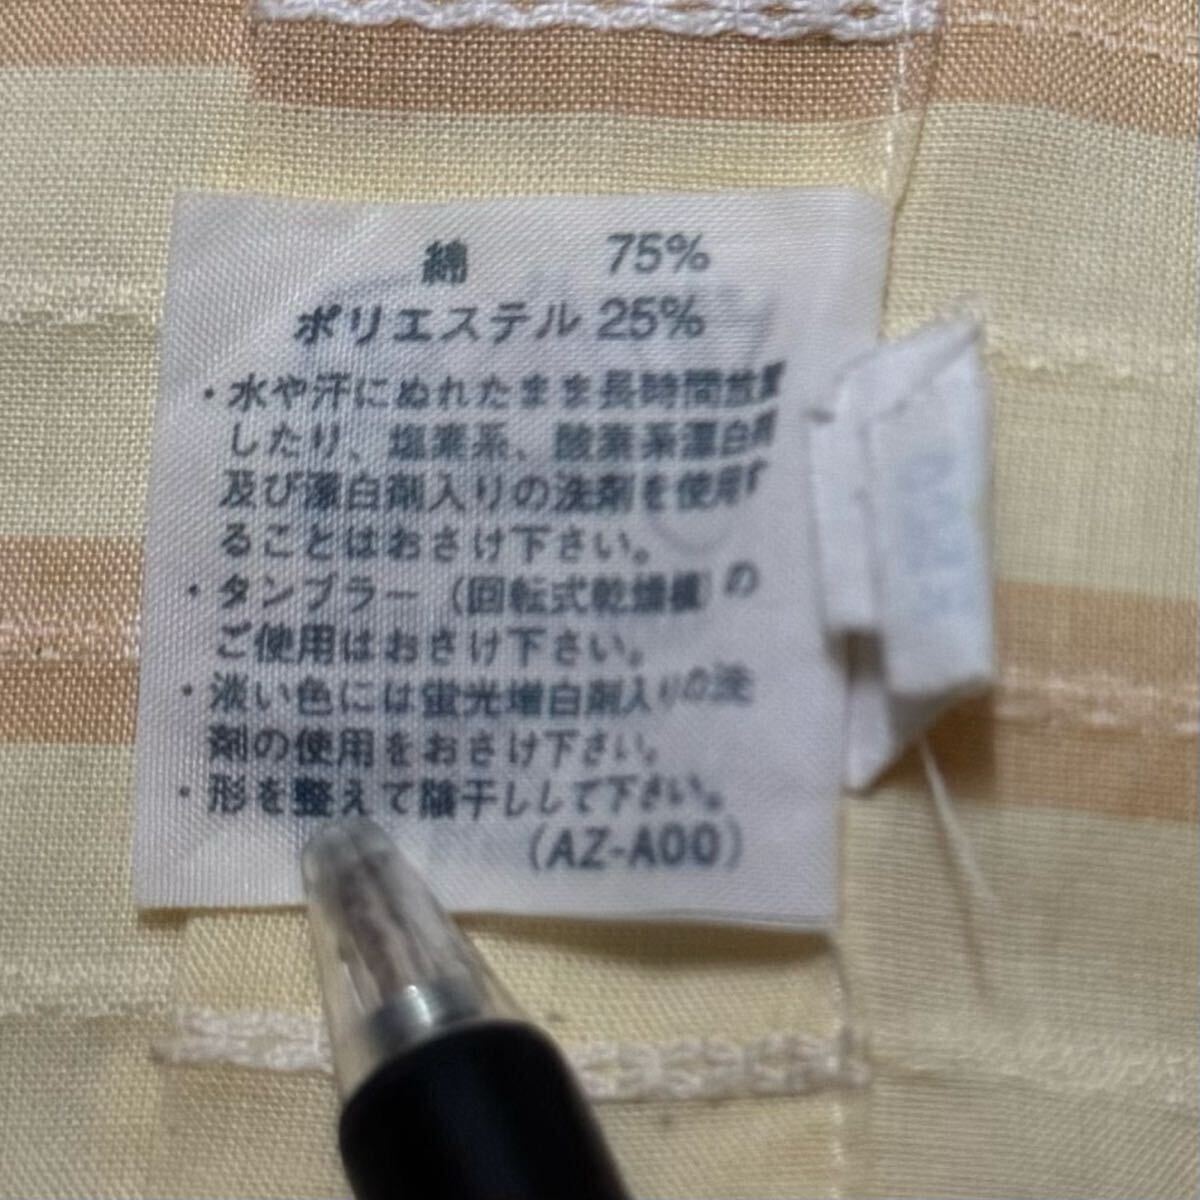 綿 75%
ポリエステル 25%
・水や汗にぬれたまま長時間放置
したり、塩素系、酸素系漂白剤
及び漂白剤入りの洗剤を使用す
ることはおさけ下さい。
・タンブラー(回転式乾燥機)の
ご使用はおさけ下さい。
・淡い色には蛍光増白剤入りの洗
剤の使用をおさけ下さい。
・形を整えて陰干しして下さい。
(AZ-A00)